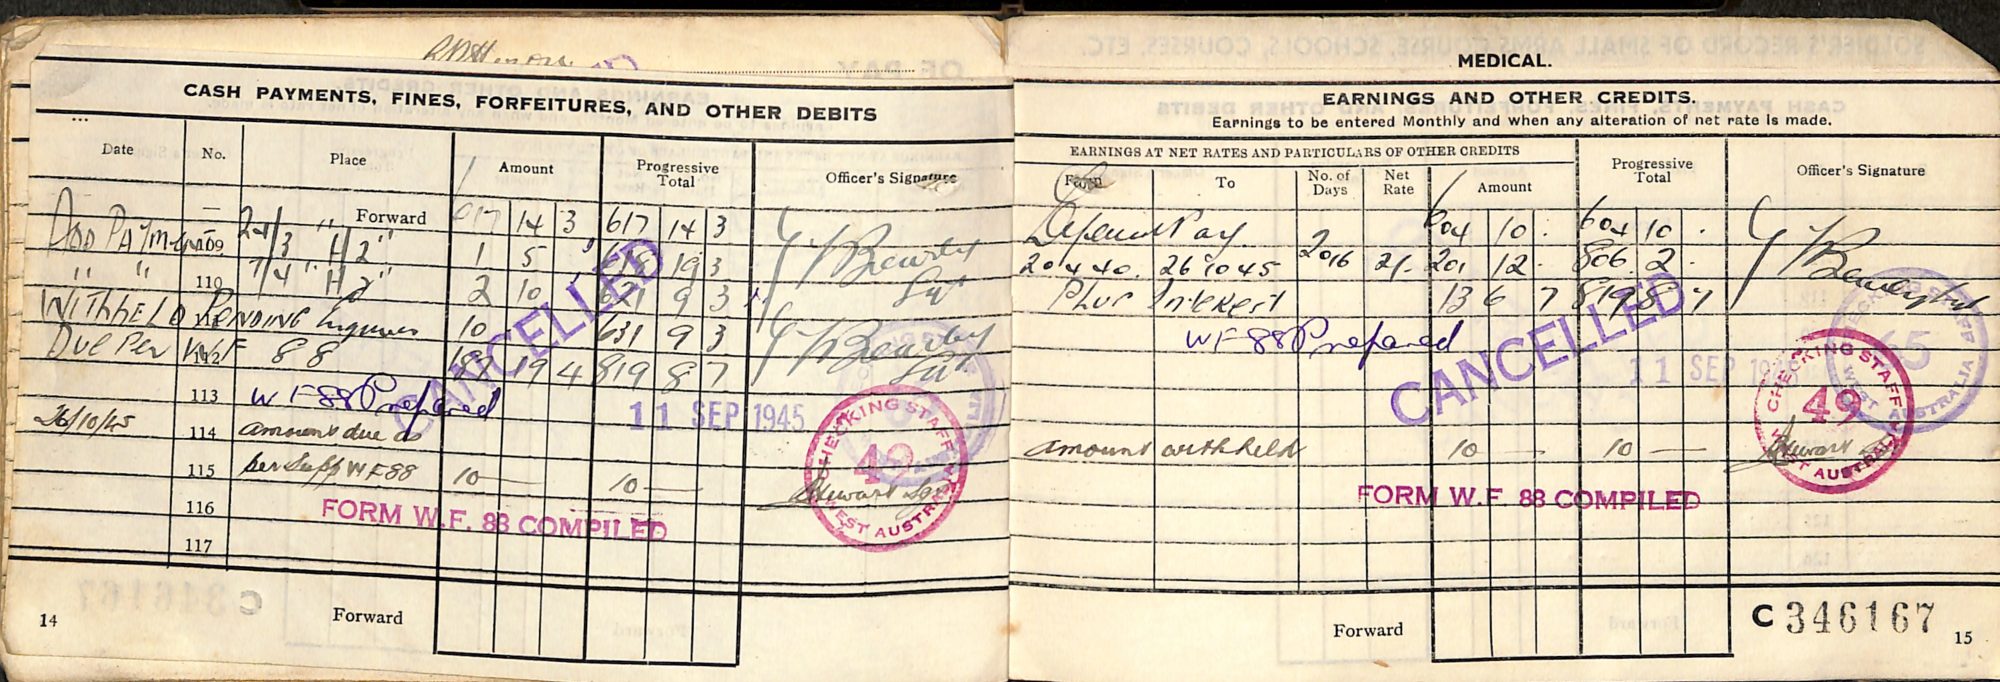 CASH PAYMENTS, FINES, FORFEITURES, AND OTHER DEBITS
Date No. Place Amount Progressive Total Officer's Signature
Forward 617 14 3 617 14 3
ADD Payments 109 24/3 "H2" 1 5 19 3
" " 110 7/4 "H2" 2 10 621 9 3
WITHHELD PENDING 10 631 9 3
Due Per W F 88 112 19 4 819 8 7
113 WF 88 Prepared
26/10/45 114 amount due as
115 per Supp WF 88 10 — 10 — Stewart Sgt
116
117
CANCELLED
11 SEP 1945
CHECKING STAFF 49 WEST AUSTRALIA
FORM W.F. 88 COMPILED
14 Forward
MEDICAL.
EARNINGS AND OTHER CREDITS.
Earnings to be entered Monthly and when any alteration of net rate is made.
EARNINGS AT NET RATES AND PARTICULARS OF OTHER CREDITS
From To No. of Days Net Rate Amount Progressive Total Officer's Signature
Deferred Pay. 604 10 . 604 10 .
20 4 40. 26 10 45 2016 2/- 201 12 . 806 2 .
Plus Interest 13 6 7 819 8 7
WF 88 Prepared
CANCELLED
11 SEP 1945
CHECKING STAFF 65 WEST AUSTRALIA
CHECKING STAFF 49 WEST AUSTRALIA
amount withheld 10 — 10 — Stewart
FORM W.F. 88 COMPILED
Forward
C 346167
15